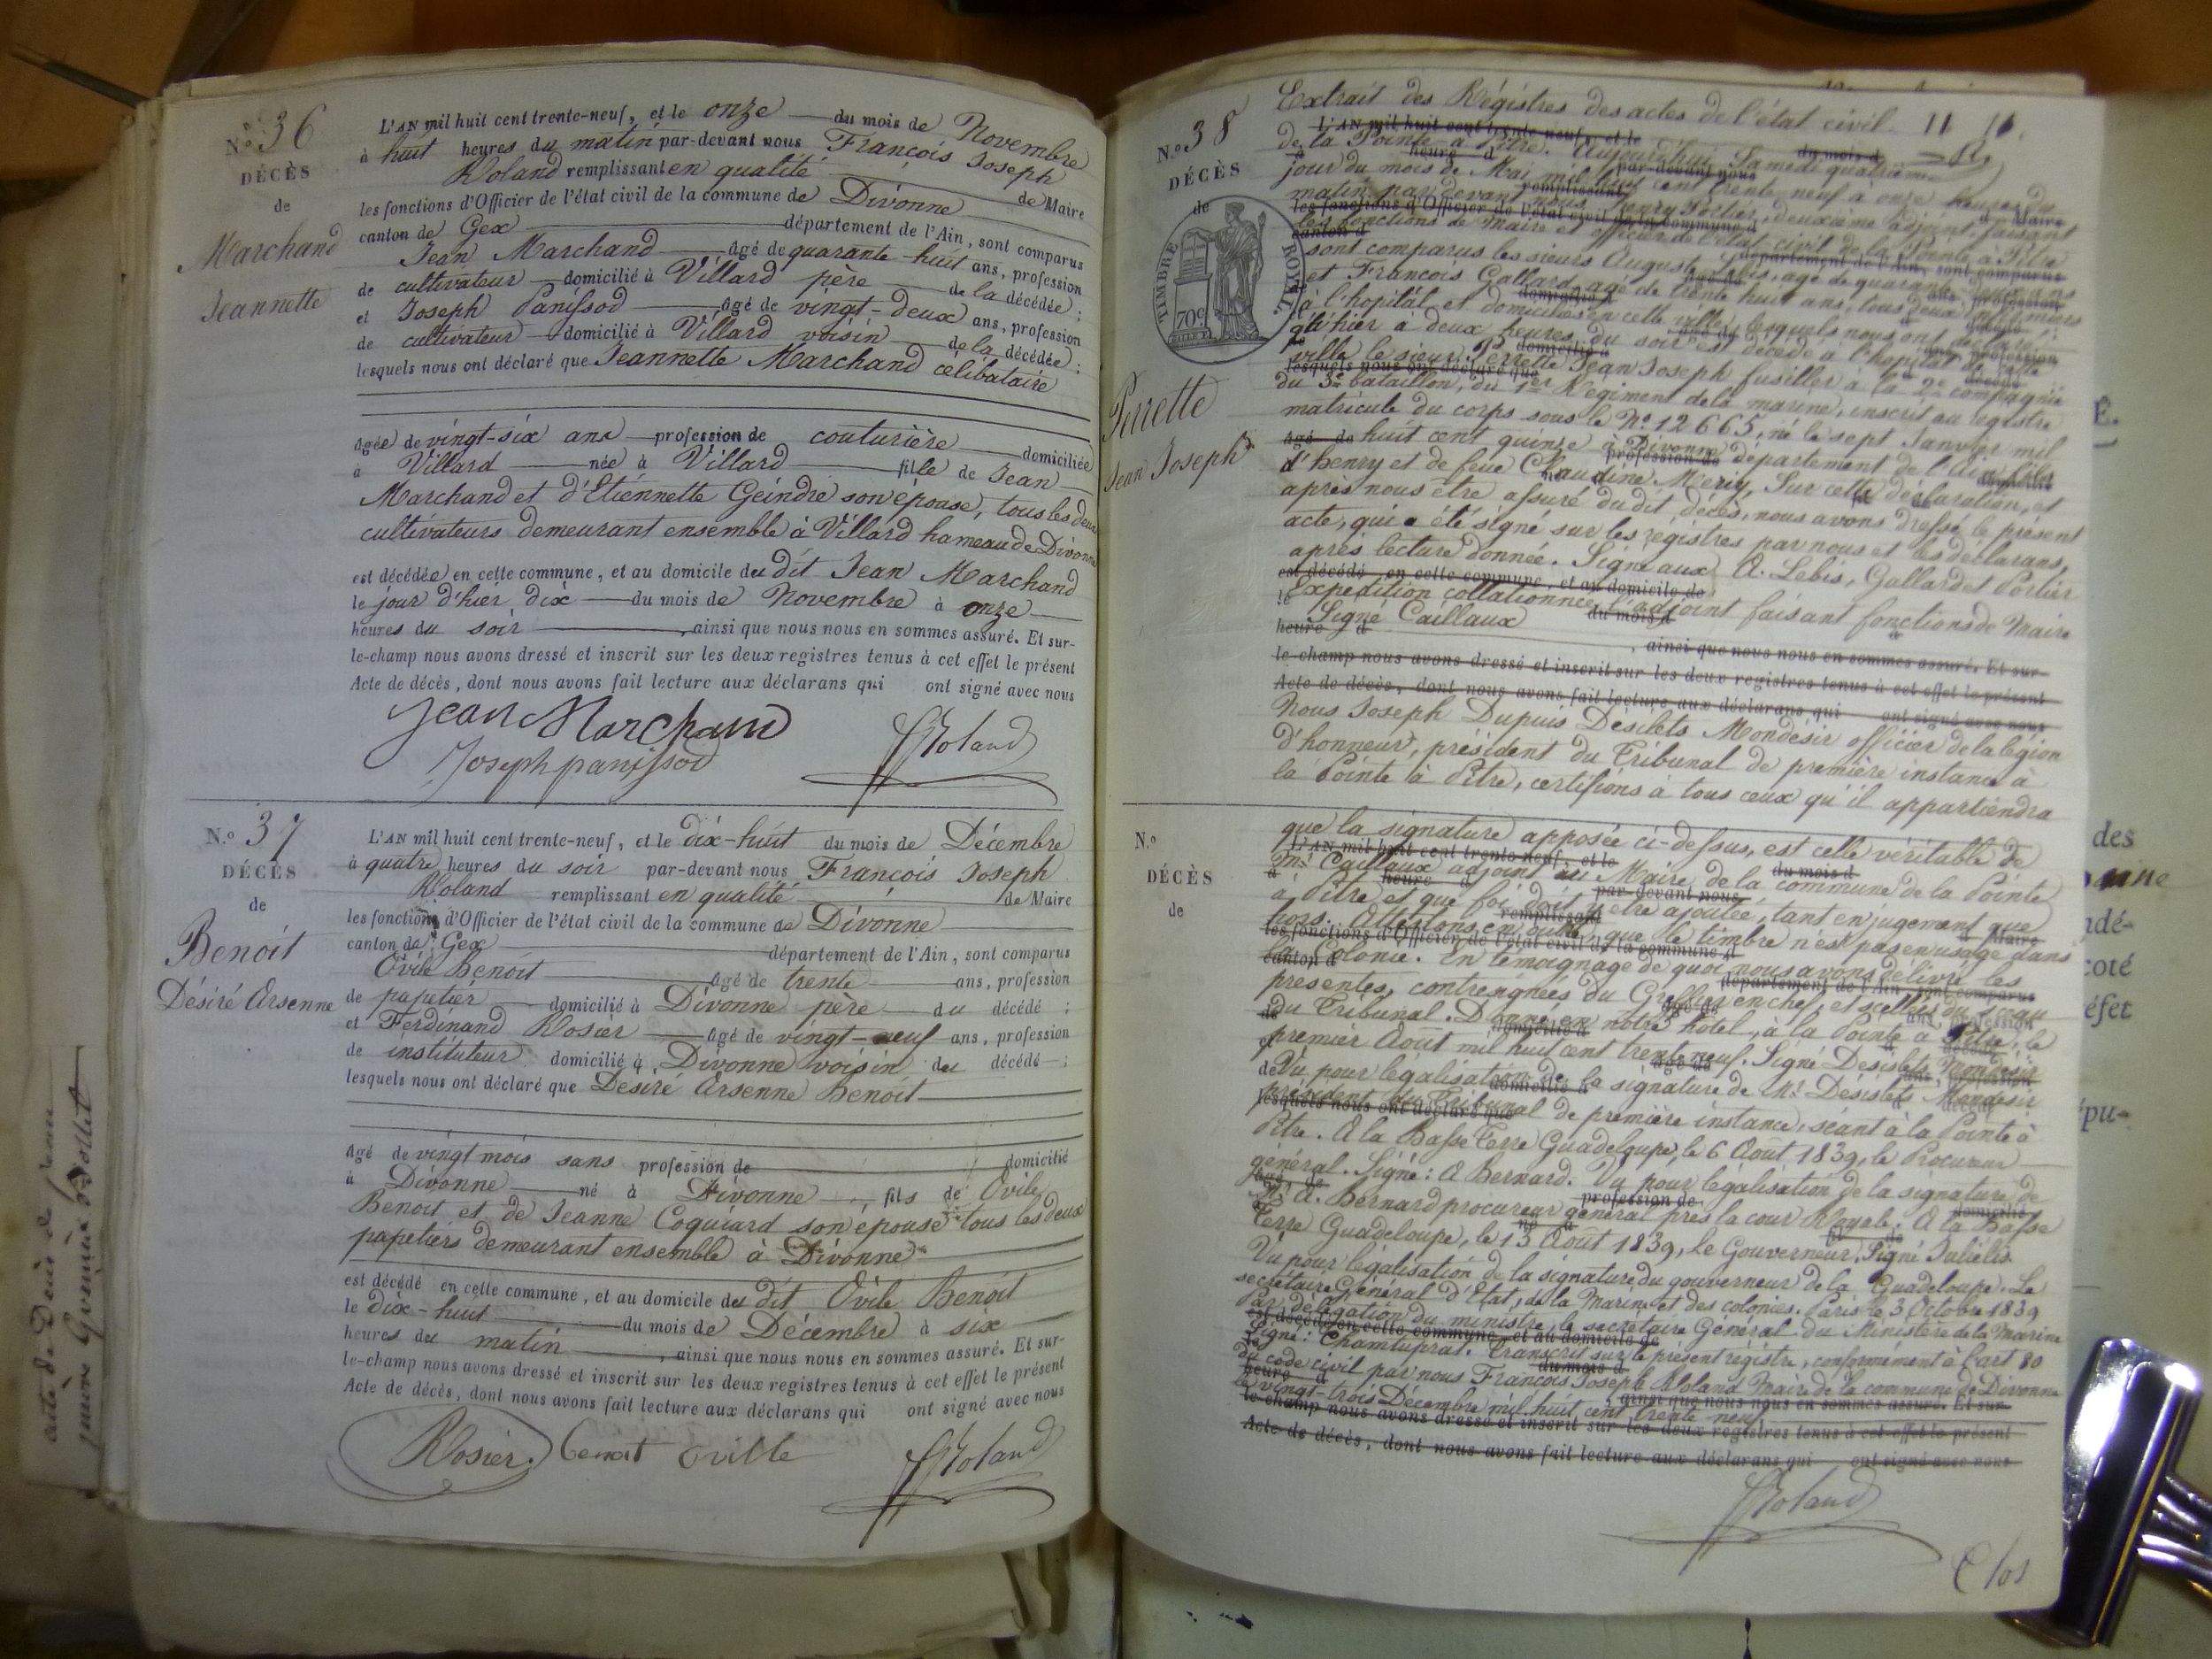 N.º 36
DÉCÈS
de
Marchand
Jeannette
L'AN mil huit cent trente-neuf, et le onze du mois de Novembre
à huit heures du matin par-devant nous François Joseph
Roland remplissant en qualité de Maire
les fonctions d'Officier de l'état civil de la commune de Divonne
canton de Gex département de l'Ain, sont comparus
Jean Marchand âgé de quarante-huit ans, profession
de cultivateur domicilié à Villard père de la décédée;
et Joseph Panissod âgé de vingt-deux ans, profession
de cultivateur domicilié à Villard voisin de la décédée;
lesquels nous ont déclaré que Jeannette Marchand célibataire
agée de vingt-six ans profession de couturière domiciliée
à Villard née à Villard fille de Jean
Marchand et d'Etiennette Geindre son épouse, tous les deux
cultivateurs demeurant ensemble à Villard hameau de Divonne
est décédée en cette commune, et au domicile du dit Jean Marchand
le jour d'hier dix du mois de Novembre à onze
heures du soir, ainsi que nous nous en sommes assuré. Et sur-
le-champ nous avons dressé et inscrit sur les deux registres tenus à cet effet le présent
Acte de décès, dont nous avons fait lecture aux déclarans qui ont signé avec nous
Jean Marchand
Joseph panissod
Roland
N.º 37
DÉCÈS
de
Benoit
Désiré Arsenne
L'AN mil huit cent trente-neuf, et le dix-huit du mois de Décembre
à quatre heures du soir par-devant nous François Joseph
Roland remplissant en qualité de Maire
les fonctions d'Officier de l'état civil de la commune de Divonne
canton de Gex département de l'Ain, sont comparus
Ovile Benoit âgé de trente ans, profession
de papetier domicilié à Divonne père du décédé;
et Ferdinand Rosier âgé de vingt-neuf ans, profession
de instituteur domicilié à Divonne voisin du décédé;
lesquels nous ont déclaré que Désiré Arsenne Benoit
âgé de vingt mois sans profession de domicilié
à Divonne né à Divonne fils de Ovile
Benoit et de Jeanne Coquiard son épouse tous les deux
papetiers demeurant ensemble à Divonne
est décédé en cette commune, et au domicile du dit Ovile Benoit
le dix-huit du mois de Décembre à six
heures du matin, ainsi que nous nous en sommes assuré. Et sur-
le-champ nous avons dressé et inscrit sur les deux registres tenus à cet effet le présent
Acte de décès, dont nous avons fait lecture aux déclarans qui ont signé avec nous
Rosier. benoit oville
Roland
N.º 38
DÉCÈS
de
TIMBRE ROYAL
70c
Perrette
Jean Joseph
Extrait des Régistres des actes de l'état civil
de la Pointe à Pitre. Aujourd'hui Samedi quatrième
jour du mois de Mai mil huit cent trente neuf à onze heures du
matin par devant nous Henry Portier, deuxième adjoint, faisant
les fonctions de Maire et officier de l'état civil de la Pointe à Pitre
sont comparus les sieurs Auguste Lebis, agé de quarante deux ans
et François Gallard agé de trente huit ans, tous deux infirmiers
à l'hopital et domiciliés en cette ville, lesquels nous ont déclaré
qu'hier à deux heures du soir est décédé à l'hopital de cette
ville le sieur Perrette Jean Joseph fusilier à la 2e compagnie
du 3e bataillon, du 1er Régiment de la marine, inscrit au registre
matricule du corps sous le Nº 12665, né le sept Janvier mil
huit cent quinze à Divonne département de l'Ain fils
d'henry et de feue Claudine Meriy, Sur cette déclaration, et
après nous être assuré du dit décès, nous avons dressé le présent
acte, qui a été signé sur les régistres par nous et les déclarans,
après lecture donnée. Signé aux A. Lebis, Gallard et Portier
Expédition collationnée l'adjoint faisant fonctions de Maire
Signé Caillaux
, ainsi que nous nous en sommes assuré. Et sur-
le-champ nous avons dressé et inscrit sur les deux registres tenus à cet effet le présent
Acte de décès, dont nous avons fait lecture aux déclarans qui ont signé avec nous
Nous Joseph Dupuis Desilets Mondesir officier de la légion
d'honneur, président du Tribunal de première instance à
la Pointe à Pitre, certifions à tous ceux qu'il appartiendra
N.º
DÉCÈS
de
que la signature apposée ci-dessus, est celle véritable de
Mr Caillaux adjoint au Maire de la commune de la Pointe
à Pitre et que foi doit y être ajoutée, tant en jugement que
hors. Attestons en outre que le timbre n'est pas en usage dans
la Colonie. En témoignage de quoi nous avons délivré les
presentes, contresignées du Greffier en chef, et scellés du sceau
du Tribunal. Donné en notre hôtel, à la Pointe à Pitre, le
premier Aout mil huit cent trente neuf. Signé Desislets Mondesir
Vu pour légalisation de la signature de Mr Désislets Mondesir
président du Tribunal de première instance, séant à la Pointe à
Pitre. A la Basse Terre Guadeloupe, le 6 Aout 1839, le Procureur
général. Signé: A Bernard. Vu pour légalisation de la signature de
Mr A. Bernard procureur général près la cour Royale. A la Basse
Terre Guadeloupe, le 13 Aout 1839, le Gouverneur. Signé
Vu pour légalisation de la signature du gouverneur de la Guadeloupe. Le
secrétaire Général d'Etat, de la Marine et des colonies. Paris le 3 Octobre 1839
Par délégation du ministre, le secrétaire Général du Ministère de la Marine
Signé: Transcrit sur le present régistre, conformément à l'art 80
du code civil par nous François Joseph Roland Maire de la commune de Divonne
le vingt-trois Décembre mil huit cent trente neuf
Acte de décès, dont nous avons fait lecture aux déclarans qui ont signé avec nous
Roland
Clos
acte de Décès de
É.
des
ndé-
coté
éfet
épu-